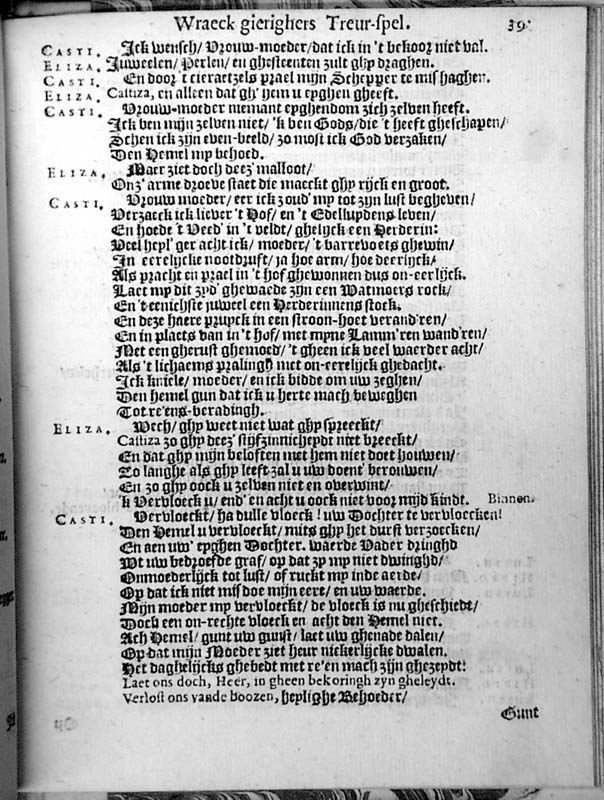 Wraeck gierighers Treur-spel. 39.
CASTI. Ick wensch/ Vrouw-moeder/ dat ick in 't bekoor niet val.
ELIZA. Juweelen/ Perlen/ en ghesteenten zult ghy draghen.
CASTI. En door 't cieraetzels prael mijn Schepper te mishaghen.
ELIZA. Castiza, en alleen dat gh' hem u eyghen gheeft.
CASTI. Vrouw-moeder niemant eyghendom zich zelven heeft.
Ick ben mijn zelven niet/ 'k ben Gods/ die 't heeft gheschapen/
Schen ick zijn even-beeld/ zo most ick God verzaken/
Den Hemel my behoed.
ELIZA. Maer ziet doch deez' malloot/
Onz' arme droeve staet die maeckt ghy rijck en groot.
CASTI. Vrouw moeder/ eer ick zoud' my tot zijn lust begheven/
Verzaeck ick liever 't Hof/ en 't Edelluydens leven/
En hoede 't Veed' in 't veldt/ ghelyck een Herderin:
Veel heyl'ger acht ick/ moeder/ 't barrevoets ghewin/
In eerelycke nootdruft/ ja hoe arm/ hoe deerlijck/
Als pracht en prael in 't hof ghewonnen dus on-eerlijck.
Laet my dit zyd' ghewaede zijn een Watmoers rock/
En 't eenichste juweel een Herderinnens stock.
En deze haere pruyck in een stroon-hoet verand'ren/
En in plaets van in 't hof/ met myne Lamm'ren wand'ren/
Met een gherust ghemoed/ 't gheen ick veel waerder acht/
Als 't lichaems pralingh met on-eerelijck ghedacht.
Ick kniele/ moeder/ en ick bidde om uw zeghen/
Den hemel gun dat ick u herte mach beweghen
Tot re'ens-beradingh.
ELIZA. Wech/ ghy weet niet wat ghy spreeckt/
Castiza zo ghy deez' stijfzinnicheydt niet breeckt/
En dat ghy mijn beloften met hem niet doet houwen/
Zo langhe als ghy leeft zal u uw doent' berouwen/
En zo ghy oock u zelven niet en overwint/
'k Vervloeck u/ end' en acht u oock niet voor mijd kindt. Binnen.
CASTI. Vervloeckt/ ha dulle vloeck! uw Dochter te vervloecken!
Den Hemel u vervloeckt/ mits ghy het durst verzoecken/
En aen uw' eyghen Dochter. waerde Vader dringhd
Wt uw bedroefde graf/ op dat zy my niet dwinghd/
Onmoederlijck tot lust/ of ruckt my inde aerde/
Op dat ick niet misdoe mijn eere/ en uw waerde.
Mijn moeder my vervloeckt/ de vloeck is nu gheschiedt/
Doch een on-rechte vloeck en acht den Hemel niet.
Ach Hemel/ gunt uw gunst/ laet uw ghenade dalen/
Op dat mijn Moeder ziet heur nickerlijcke dwalen.
Het daghelijcks ghebedt met re'en mach zijn ghezeydt:
Laet ons doch, Heer, in gheen bekoringh zyn gheleydt.
Verlost ons vande boozen, heylighe Behoeder/
Gunt